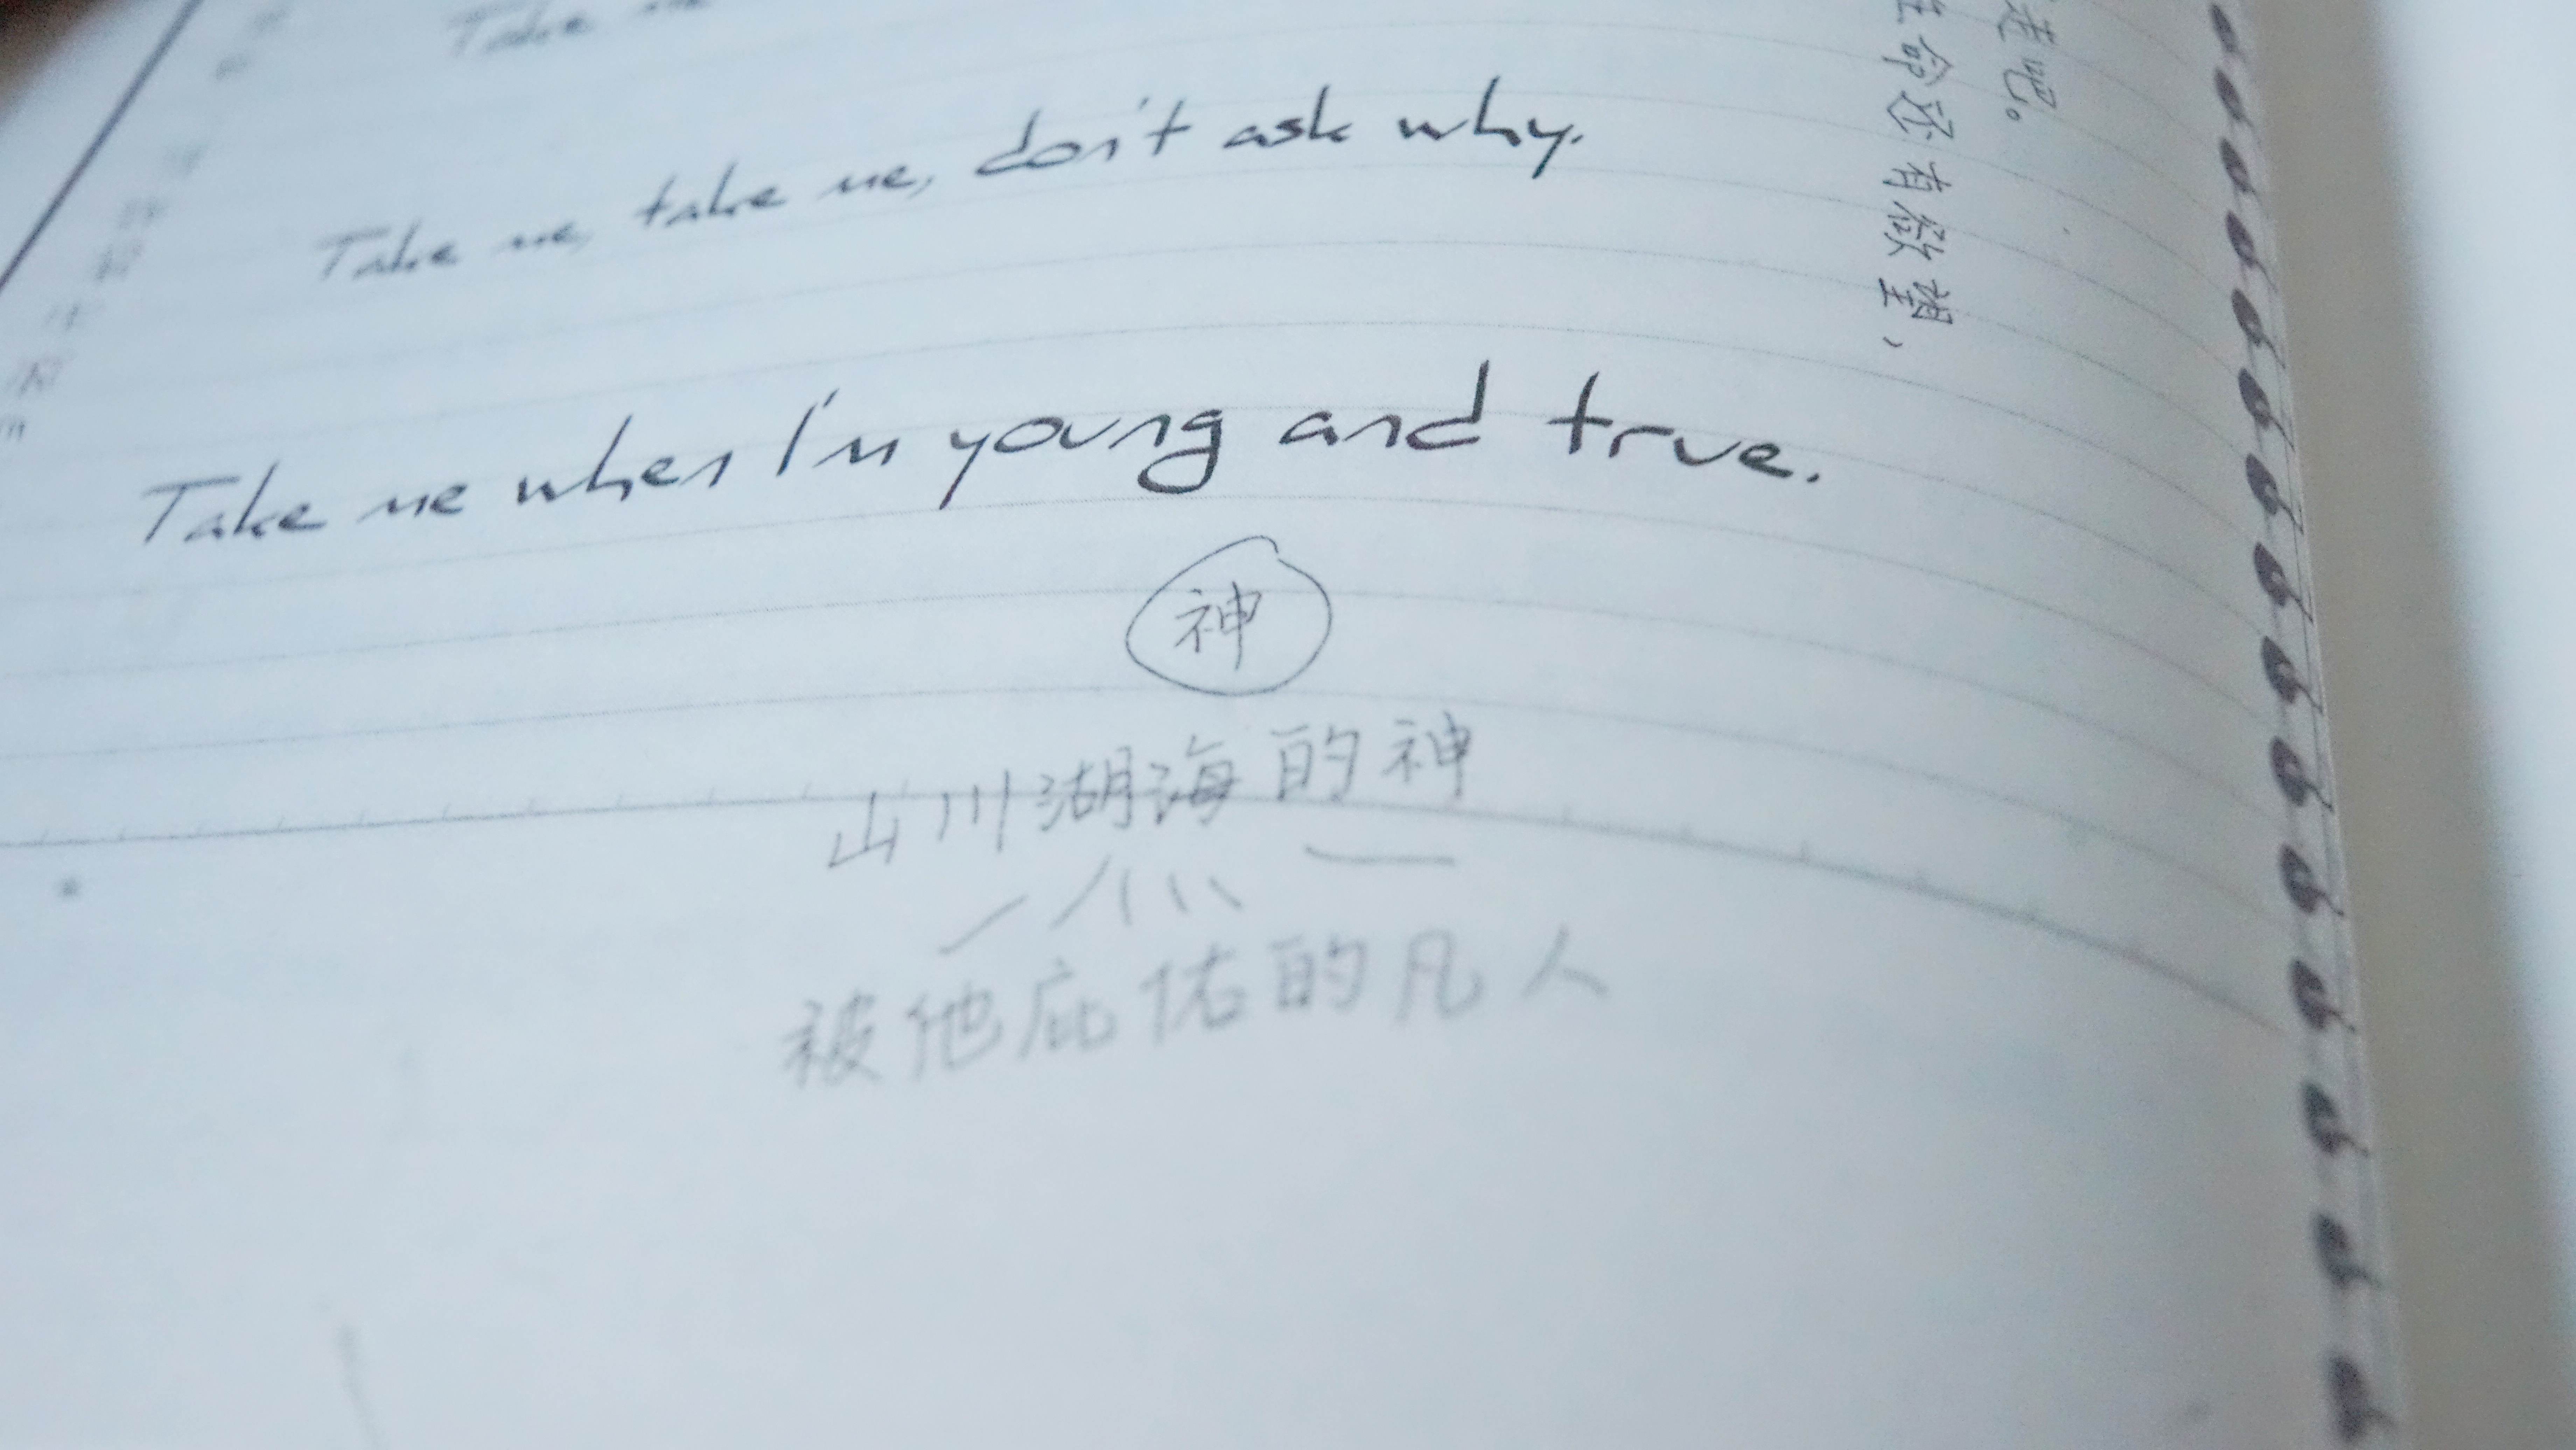 Take me
Take me, take me, don't ask why.
Take me when I'm young and true.
走吧。
命还有欲望，
神
山川湖海的神
被他庇佑的凡人